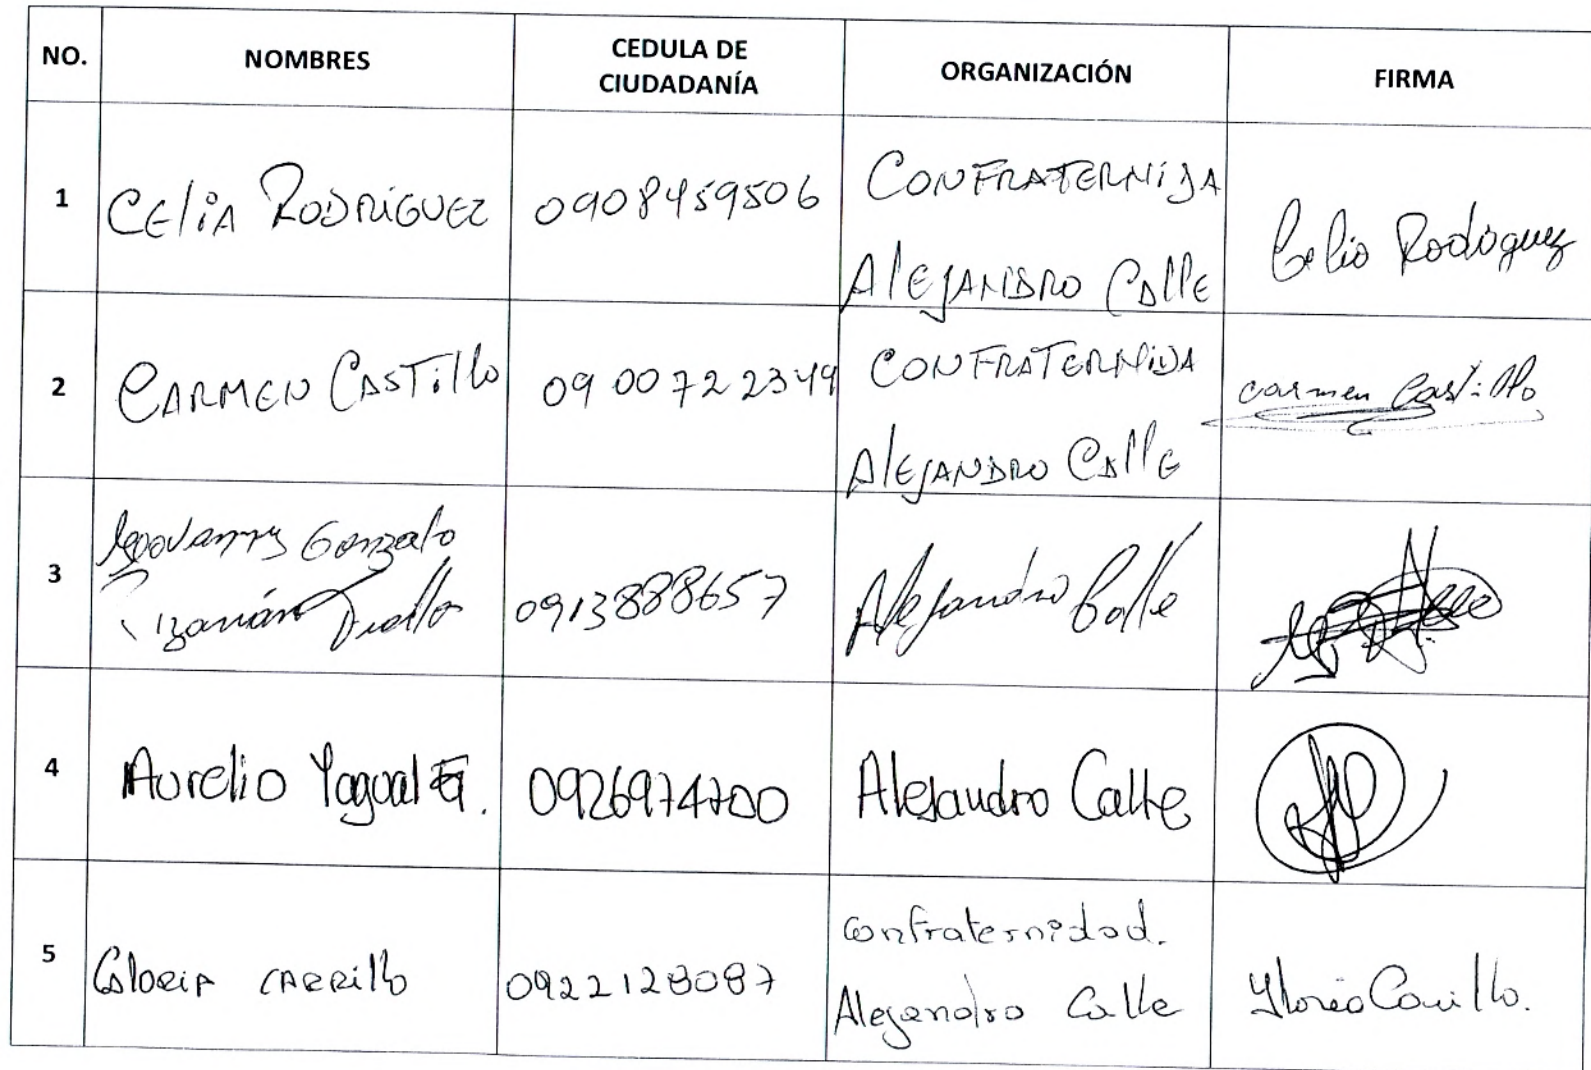 NO. NOMBRES CEDULA DE CIUDADANÍA ORGANIZACIÓN FIRMA
1 CELIA RODRIGUEZ 0908459506 CONFRATERNIDA
ALEJANDRO CALLE Celia Rodriguez
2 CARMEN CASTILLO 0900722349 CONFRATERNIDA
ALEJANDRO CALLE carmen Castillo
3 Geovanny Gonzalo
0913888657 Alejandro Calle
4 Aurelio Yagual G. 0926974700 Alejandro Calle
5 Gloria CARRillo 0922128087 Confraternidad.
Alejandro Calle Gloria Carrillo.